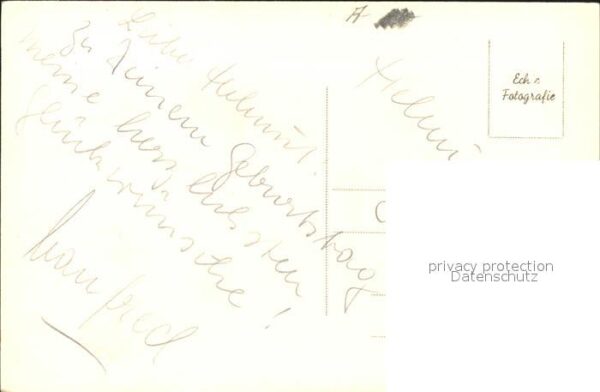 Lieber Helmut!
Zu Deinem Geburtstag
meine herzlichsten
Glückwünsche!
Manfred
A
Helmu
Echte
Fotografie
privacy protection
Datenschutz